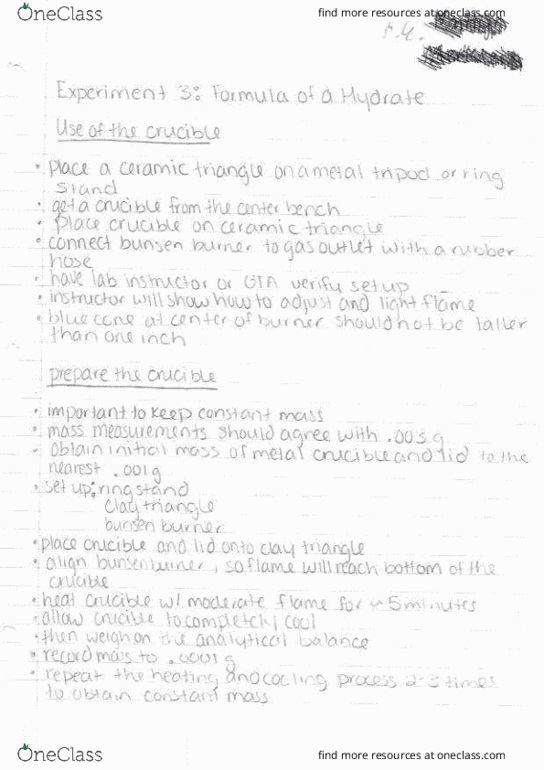 OneClass
find more resources at oneclass.com
Experiment 3: Formula of a Hydrate
Use of the crucible
• place a ceramic triangle on a metal tripod or ring
stand
• get a crucible from the center bench
• Place crucible on ceramic triangle
• connect bunsen burner to gas outlet with a rubber
hose
• have lab instructor or GTA verify setup
• instructor will show how to adjust and light flame
• blue cone at center of burner should not be taller
than one inch
prepare the crucible
• important to keep constant mass
• mass measurements should agree with .003g
• obtain initial mass of metal crucible and lid to the
nearest .001g
• set up: ring stand
clay triangle
bunsen burner
• place crucible and lid onto clay triangle
• align bunsen burner, so flame will reach bottom of the
crucible
• heat crucible w/ moderate flame for ~5 minutes
• allow crucible to completely cool
• then weigh on the analytical balance
• record mass to .0001g
• repeat the heating and cooling process 2-3 times
to obtain constant mass
OneClass
find more resources at oneclass.com